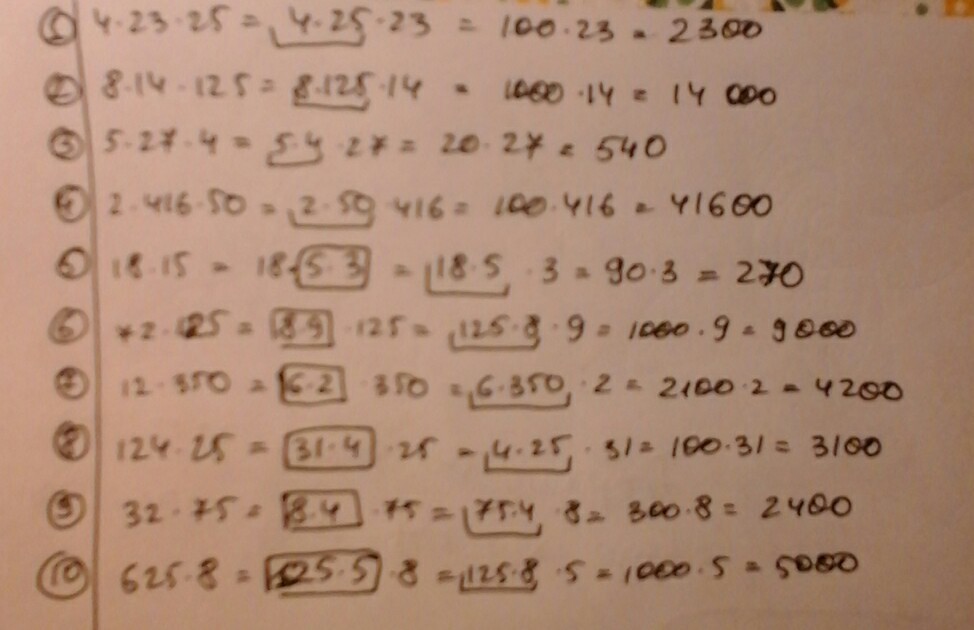 ① 4·23·25 = 4·25·23 = 100·23 = 2300
② 8·14·125 = 8·125·14 = 1000·14 = 14 000
③ 5·27·4 = 5·4·27 = 20·27 = 540
④ 2·416·50 = 2·50·416 = 100·416 = 41600
⑤ 18·15 = 18·5·3 = 18·5·3 = 90·3 = 270
⑥ 72·125 = 8·9·125 = 125·8·9 = 1000·9 = 9000
⑦ 12·350 = 6·2·350 = 6·350·2 = 2100·2 = 4200
⑧ 124·25 = 31·4·25 = 4·25·31 = 100·31 = 3100
⑨ 32·75 = 8·4·75 = 75·4·8 = 300·8 = 2400
⑩ 625·8 = 125·5·8 = 125·8·5 = 1000·5 = 5000